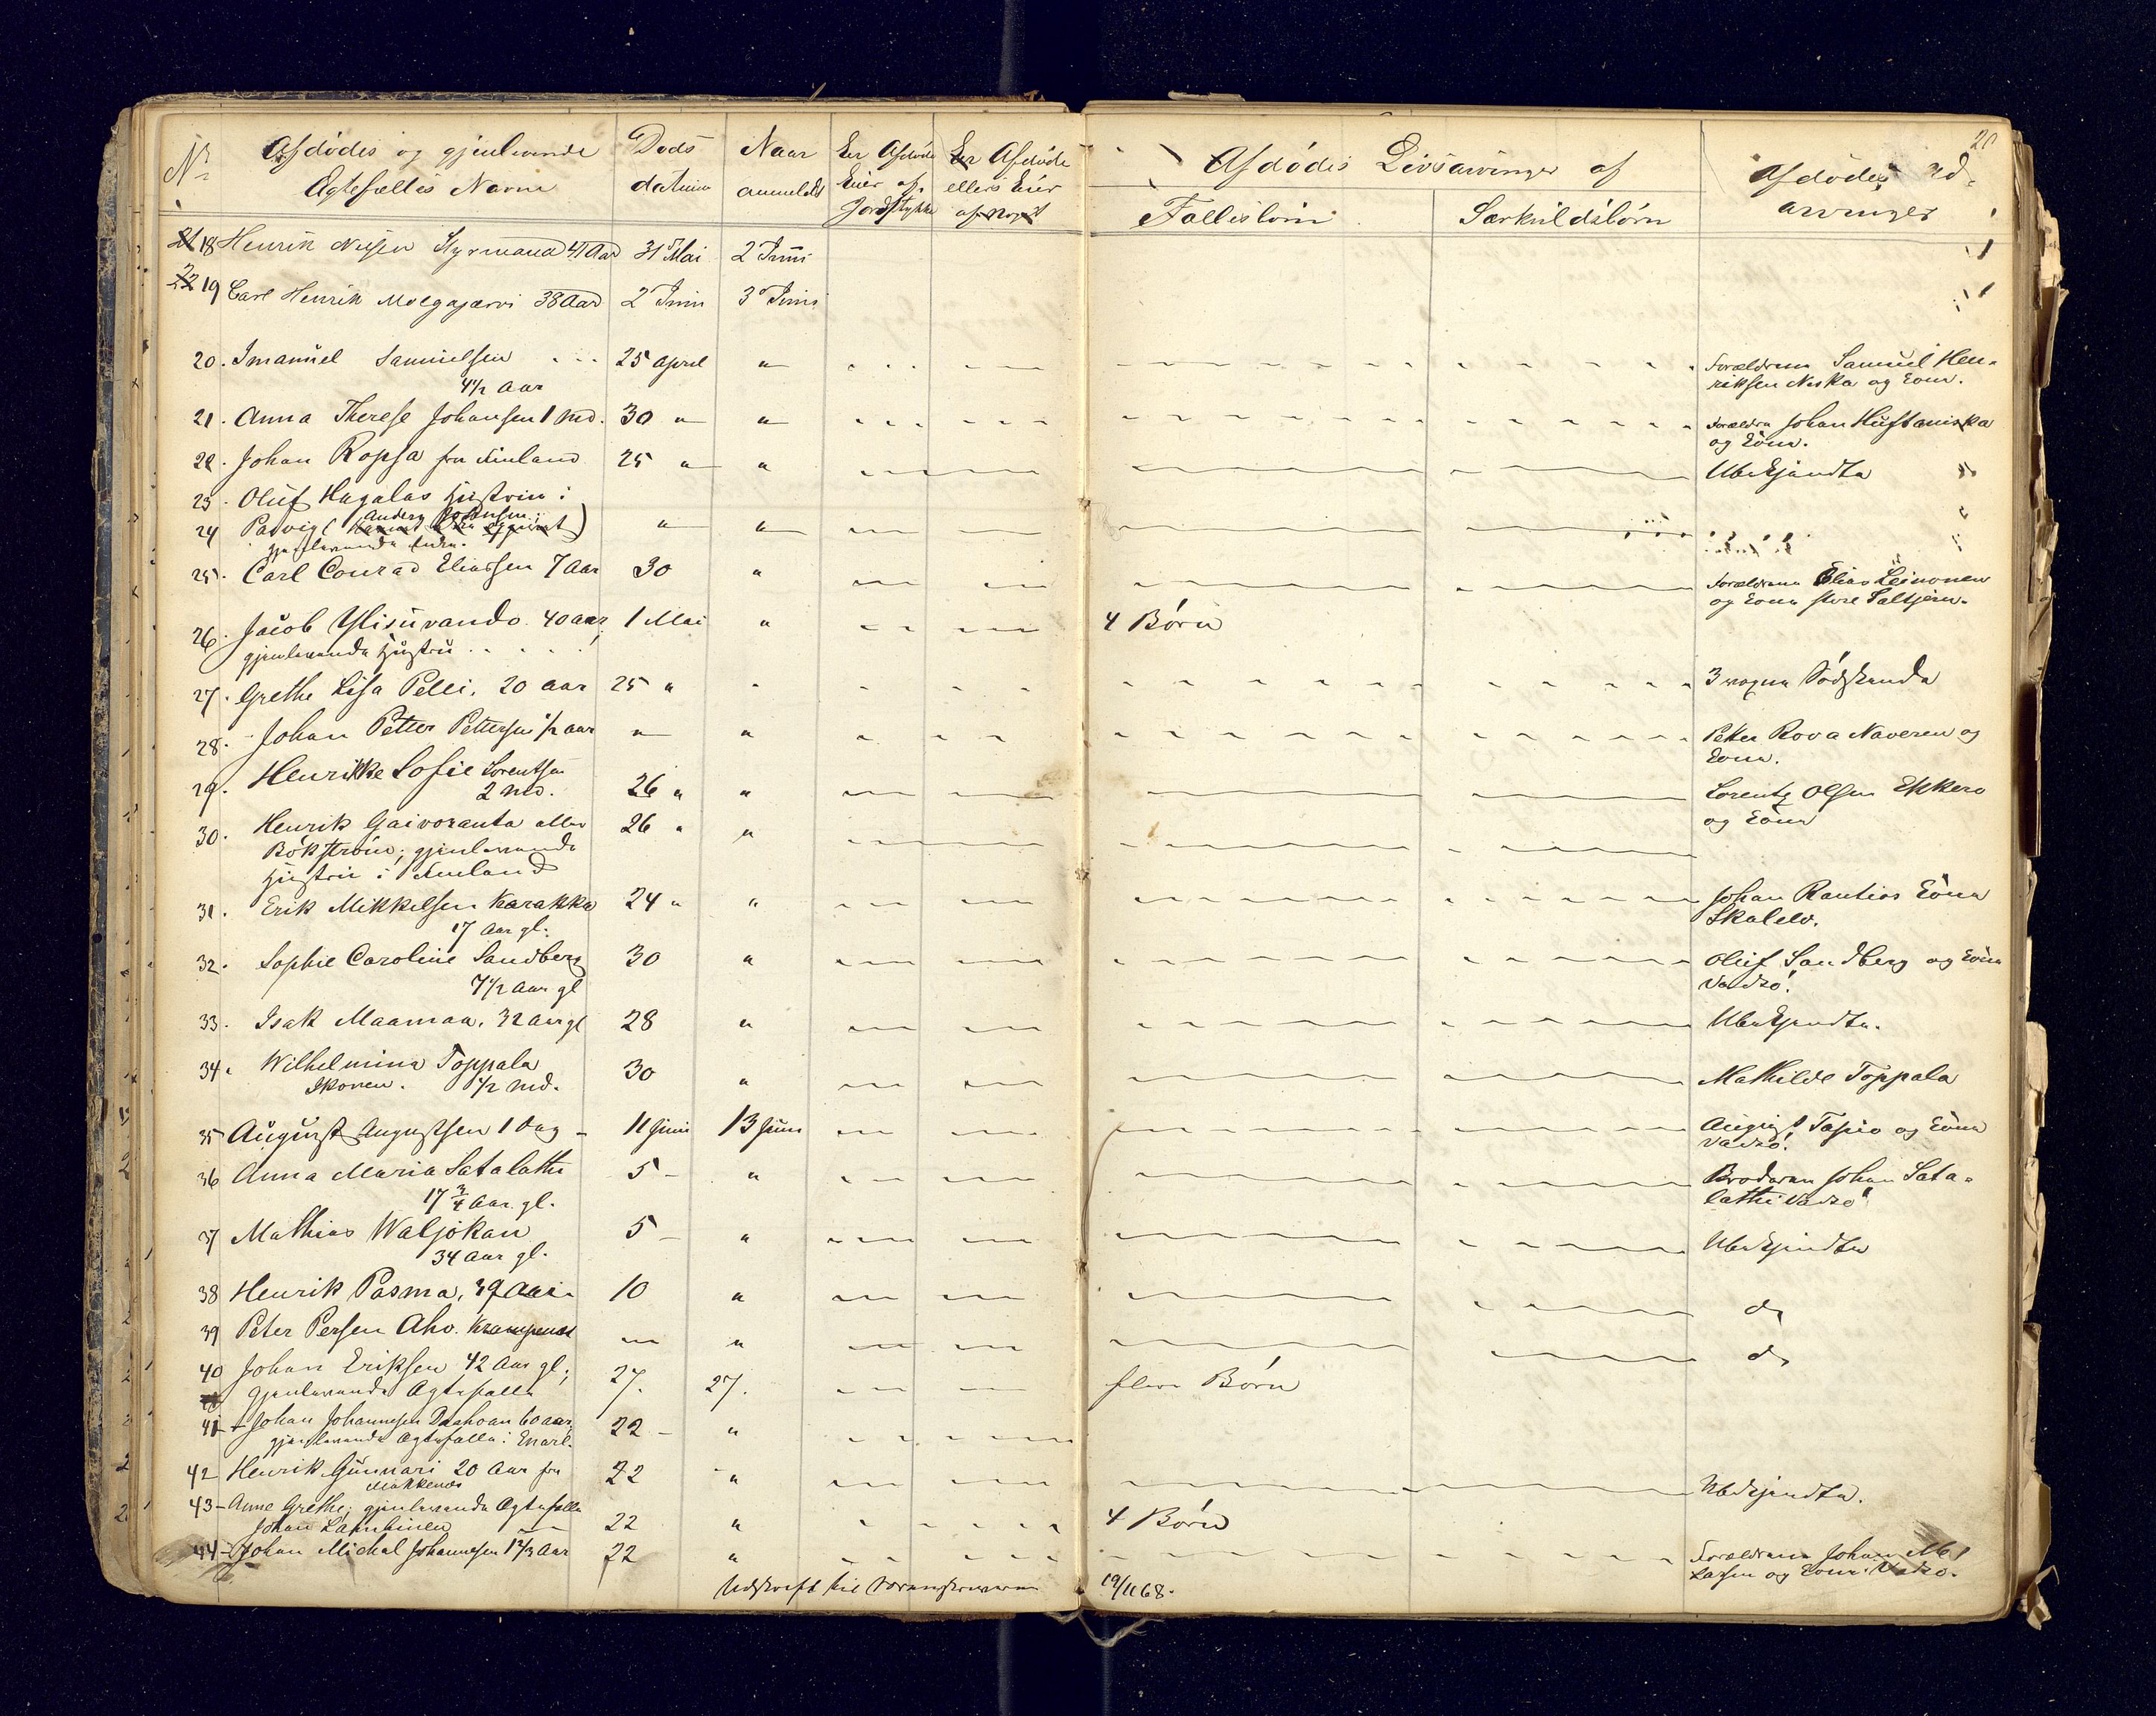 20
No
Afdødes og gjenlevende
Ægtefælles Navne
Døds
datum
Naar
anmeldt
Er Afdøde
Eier af
Jordstykke
Er Afdøde
ellers Eier
af noget
Afdødes Livsarvinger af
Fællesbørn
Særkuldsbørn
Afdødes Ud-
arvinger
21 18 Henrik Styrmand 41 Aar 31 Mai 2 Juni
22 19 Carl Henrik 38 Aar 2 Juni 3 Juni
20. Imanuel Samuelsen 25 April " Forældrene Samuel Hen-
4 1/2 Aar riksen Niska og Kone.
21. Anna Therese Johansen 1 Md. 30 " " Forældre Johan
og Kone.
22. Johan Ropsa fra Finland 25 " " Ubekjendte
23. Oluf Hagalas Hustru i
Anders Johansen
24 Pasvig " "
gjenlevende
25. Carl Conrad Eliassen 7 Aar 30 " Forældrene Elias Leinonen
og Kone store
26. Jacob Ylisuvando 40 aar, 1 Mai " 4 Børn
gjenlevende Hustru
27. Grethe Lisa Pelli, 20 aar 25 " 3 Sødskende
28. Johan Petter Pettersen 1/2 aar " " Peter Rova Naveren og
Kone.
29. Henrikke Sofie Lorentsen 26 " " Lorentz Olsen Ekkero
2 Md. og Kone
30. Henrik Gaivoranta eller 26 " "
Bökström; gjenlevende
Hustru i Finland
31. Erik Mikkelsen Karakka 24 " " Johan Rantios Kone
17 Aar gl. Skalelv.
32. Sophie Caroline Sandberg 30 " Oluf Sandberg og Kone
7 1/2 Aar gl Vadsö.
33. Isak Maaman, 32 Aar gl 28 " Ubekjendte.
34. Wilhelmina Toppala 30 " Mathilde Toppala
Skonen. 1/2 Md.
35 August Augustsen 1 Dag - 11 Juni 13 Juni August Tapio og Kone
Vadsö.
36 Anna Maria Satalathi 5 - " Broderen Johan Sata-
17 3/4 Aar gl. lathi Vadsö
37 Mathias Waljokan 5 - " Ubekjendte
34 Aar gl.
38 Henrik Pasma, 39 Aar. 10 " do
39 Peter Persen Aho. Krampenæs " do
40 Johan Eriksen 42 Aar gl; 27. 27. flere Børn
gjenlevende Ægtefælle
41 - Johan Johannesen 60 aar, 22 - "
gjenlevende Ægtefælle i Enare.
42 Henrik Gunnari 20 Aar fra 22 " Ubekjendte.
Makkenæs
43 - Anne Grethe; gjenlevende Ægtefælle
Johan Lambinen 22 " 4 Børn
44 - Johan Michal Johannesen 1 2/3 Aar 22 " Forældrene Johan
og Kone. Vadsö.
Udskrift til Sorenskriveren 19/11 68.